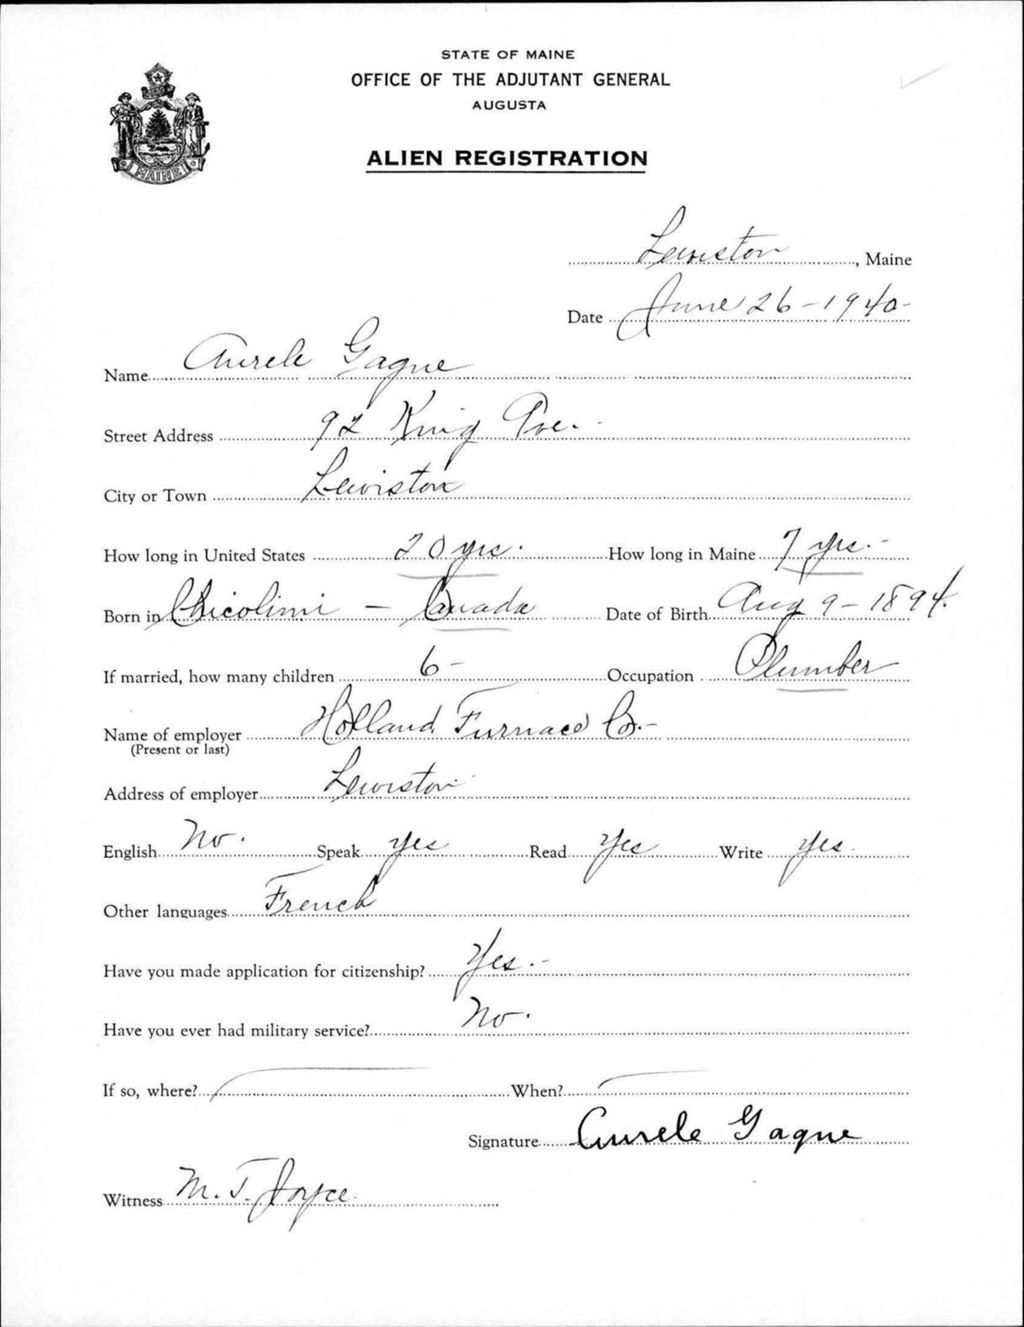 STATE OF MAINE
OFFICE OF THE ADJUTANT GENERAL
AUGUSTA
ALIEN REGISTRATION
MAINE
Lewiston, Maine
Date June 26-1940-
Name Aurele Gagne
Street Address 92 King Ave.
City or Town Lewiston
How long in United States 20 yrs. How long in Maine 7 yrs.-
Born in Chicotimi - Canada Date of Birth Aug 9-1894.
If married, how many children 6- Occupation Plumber
Name of employer Holland Furnace Co.-
(Present or last)
Address of employer Lewiston
English No. Speak yes Read Yes Write yes.
Other languages French
Have you made application for citizenship? Yes.-
Have you ever had military service? No.
If so, where? When?
Signature Aurele Gagne
Witness M. T. Joyce